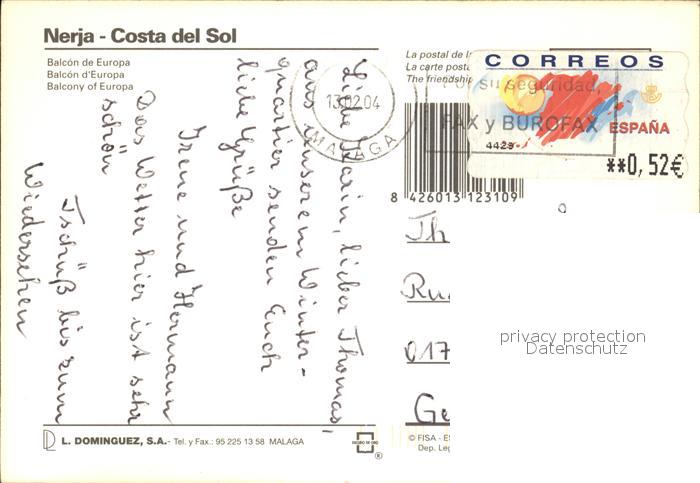 Nerja - Costa del Sol
Balcón de Europa
Balcón d'Europa
Balcony of Europa
Liebe Karin, lieber Thomas,
aus unserem Winter-
quartier senden Euch
liebe Grüße
Irene und Hermann
Das Wetter hier ist sehr
schön
Tschüß bis zum
Wiedersehen
La postal de la
La carte posta
The friendship
CORREOS
Por su seguridad,
FAX y BUROFAX
ESPAÑA
4429
**0,52€
13 02 04
MALAGA
8 426013 123109
Th
Ru
017
Ge
privacy protection
Datenschutz
L. DOMINGUEZ, S.A. - Tel. y Fax.: 95 225 13 58 MALAGA
ESCUDO DE ORO
®
© FISA - ES
Dep. Leg